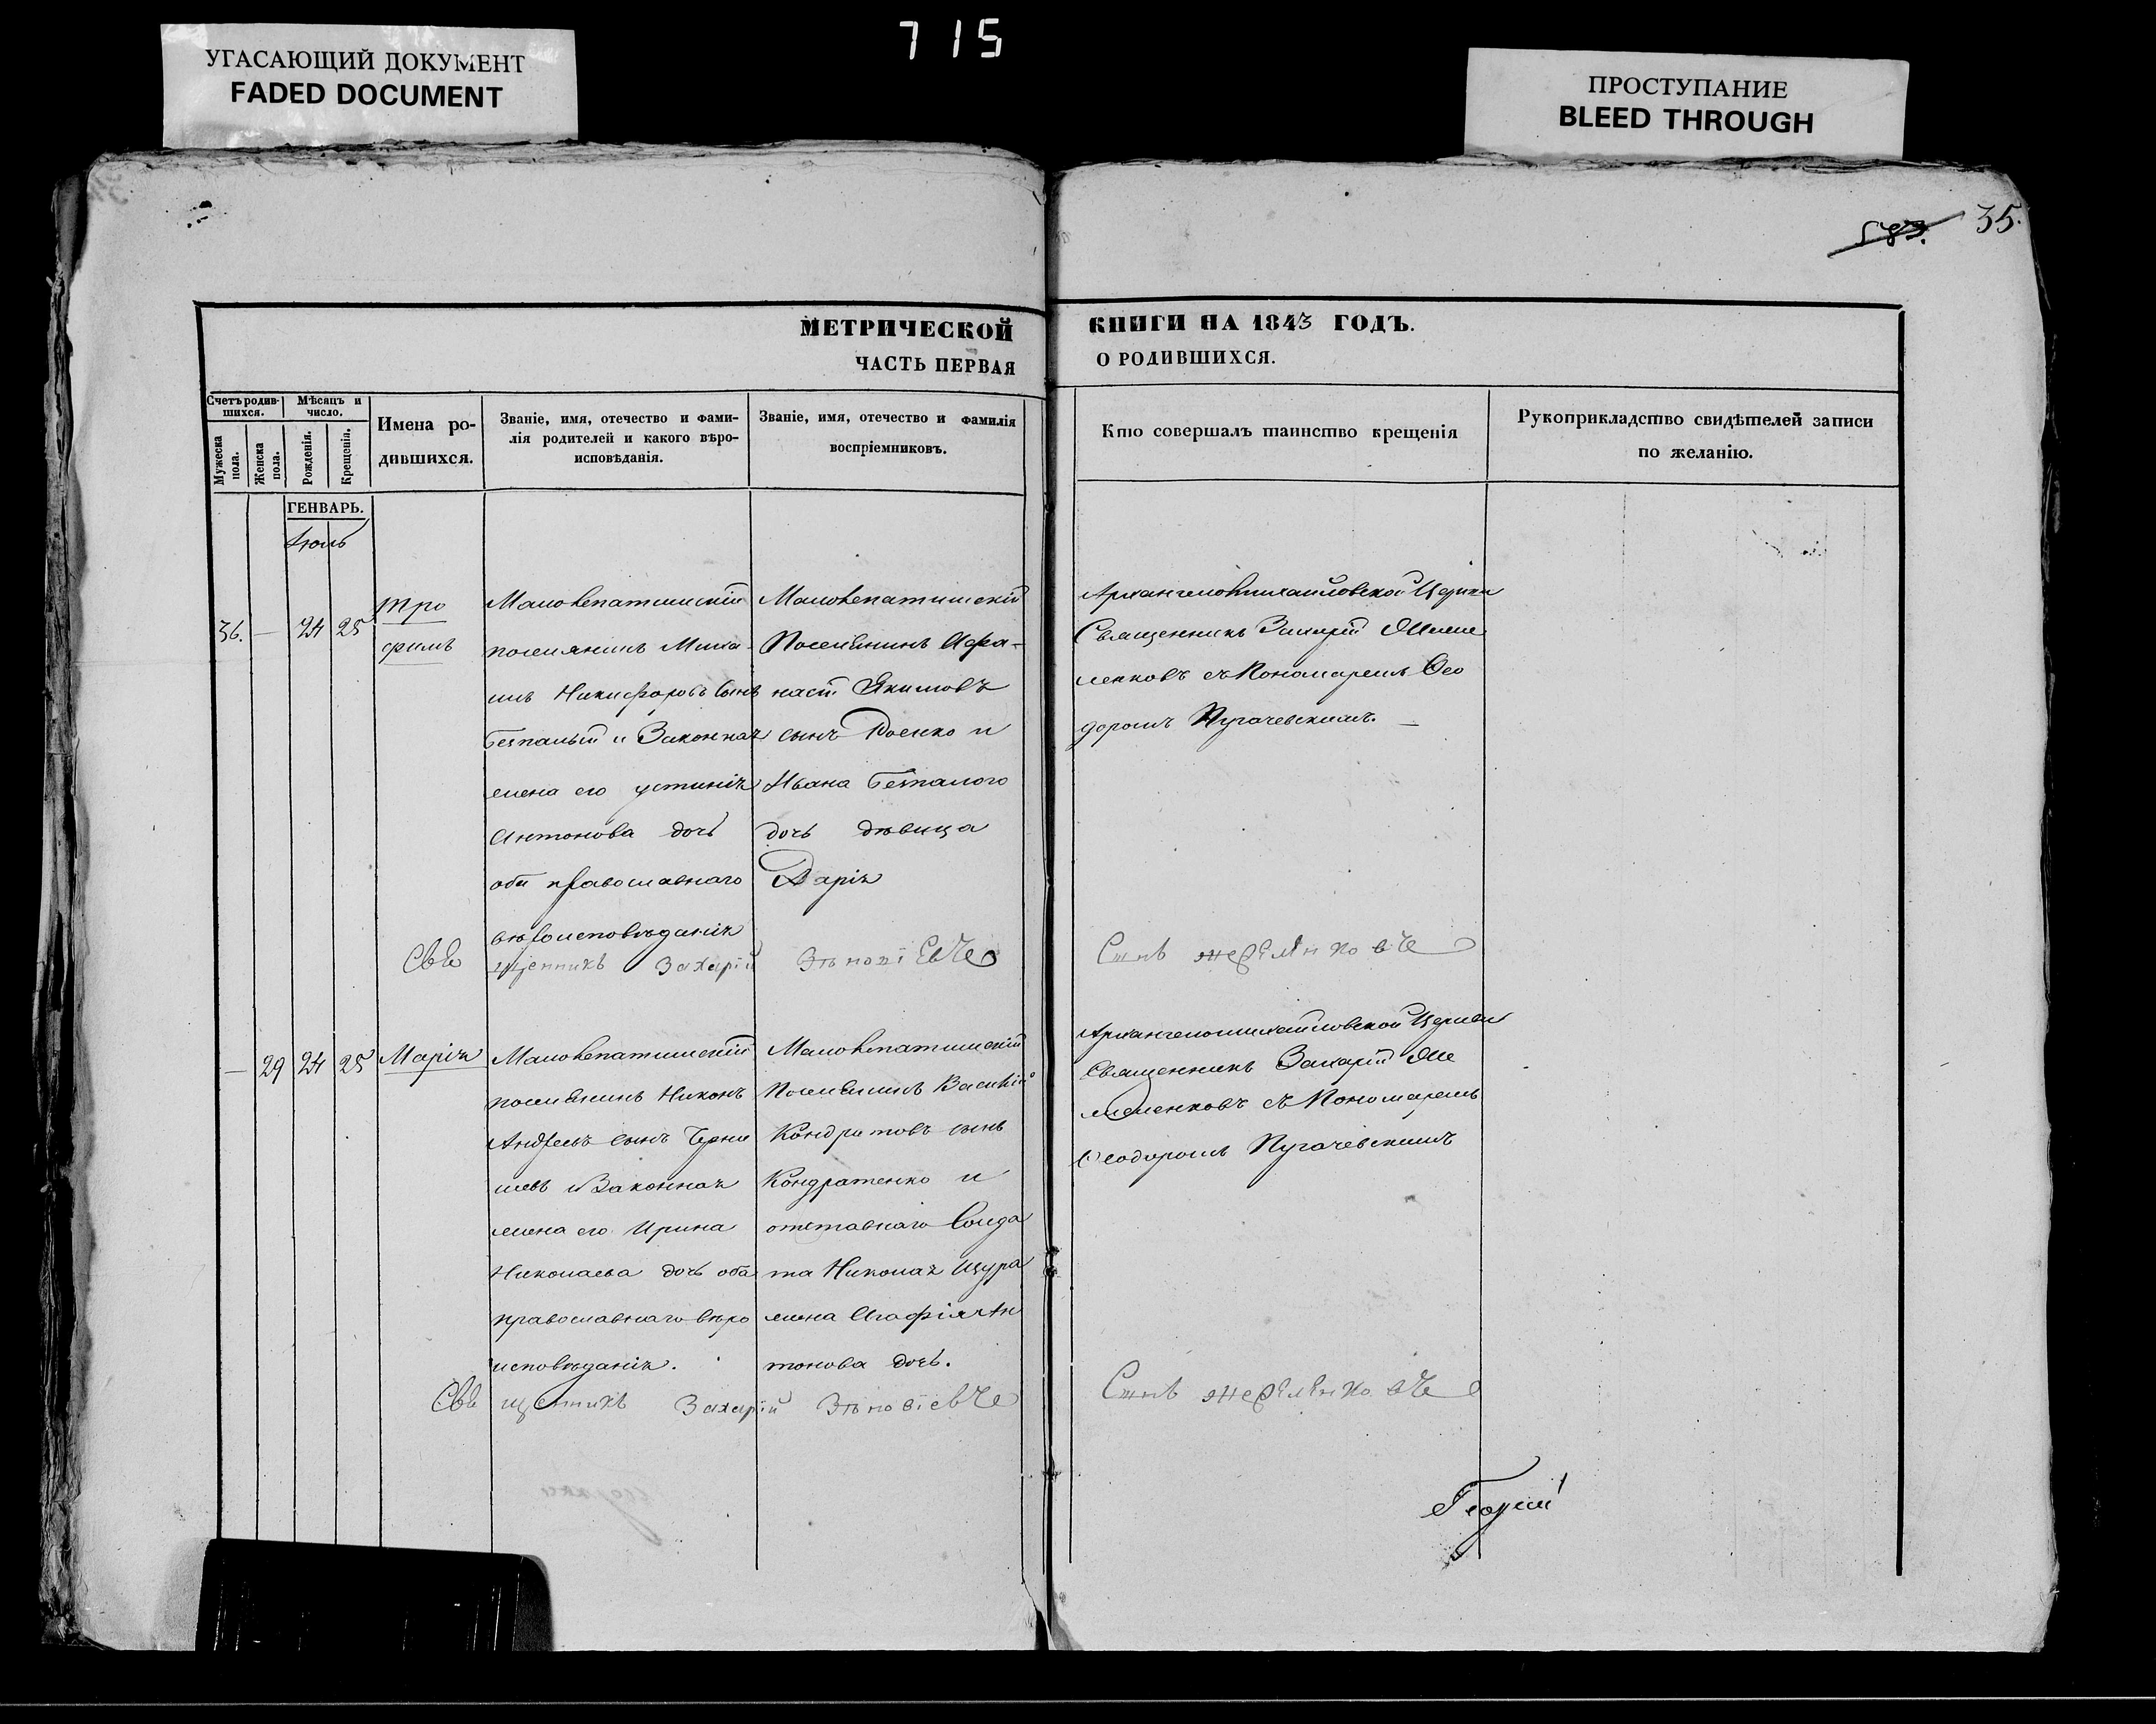 УГАСАЮЩИЙ ДОКУМЕНТ
FADED DOCUMENT
715
ПРОСТУПАНИЕ
BLEED THROUGH
583. 35.
МЕТРИЧЕСКОЙ КНИГИ НА 1843 ГОДЪ.
ЧАСТЬ ПЕРВАЯ О РОДИВШИХСЯ.
Счетъ родив-
шихся.
Мужеска
пола.
Женска
пола.
Мѣсяцъ и
число.
Рожденія.
Крещенія.
Имена ро-
дившихся.
Званіе, имя, отечество и фами-
лія родителей и какого вѣро-
исповѣданія.
Званіе, имя, отечество и фамилія
воспріемниковъ.
Кто совершалъ таинство крещенія
Рукоприкладство свидѣтелей записи
по желанію.
ГЕНВАРЬ.
Іюль
36. — 24 25
Тро
фимъ
поселянинъ Миха-
илъ Никифоровъ сынъ
Безпалый и Законная
жена его Устинія
Антонова дочь
оба православнаго
вѣроисповѣданія
Поселянинъ Афа-
насій Якимовъ
сынъ и
Ивана Безпалого
дочь дѣвица
Дарія
Архангеломихайловской Церкви
Священникъ Захарій
съ Пономаремъ Ѳео
доромъ Пугачевскимъ. —
Священникъ Захарій
— 29 24 25
Марія
поселянинъ Никонъ
Андреевъ сынъ Черны
шевъ и Законная
жена его Ирина
Николаева дочь оба
православнаго вѣро
исповѣданія.
Поселянинъ Василій
Кондратовъ сынъ
Кондратенко и
отставнаго Солда
та Николая Щура
жена Агафія Ан
тонова дочь.
Архангеломихайловской Церкви
Священникъ Захарій
съ Пономаремъ
Ѳеодоромъ Пугачевскимъ
Священникъ Захарій
Георгій